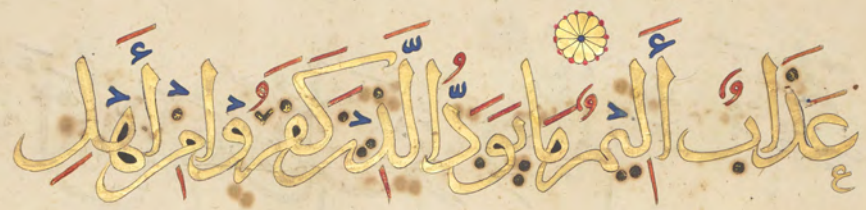 عَذَابٌ أَلِيمٌ مَا يَوَدُّ الَّذِينَ كَفَرُوا مِنْ أَهْلِ